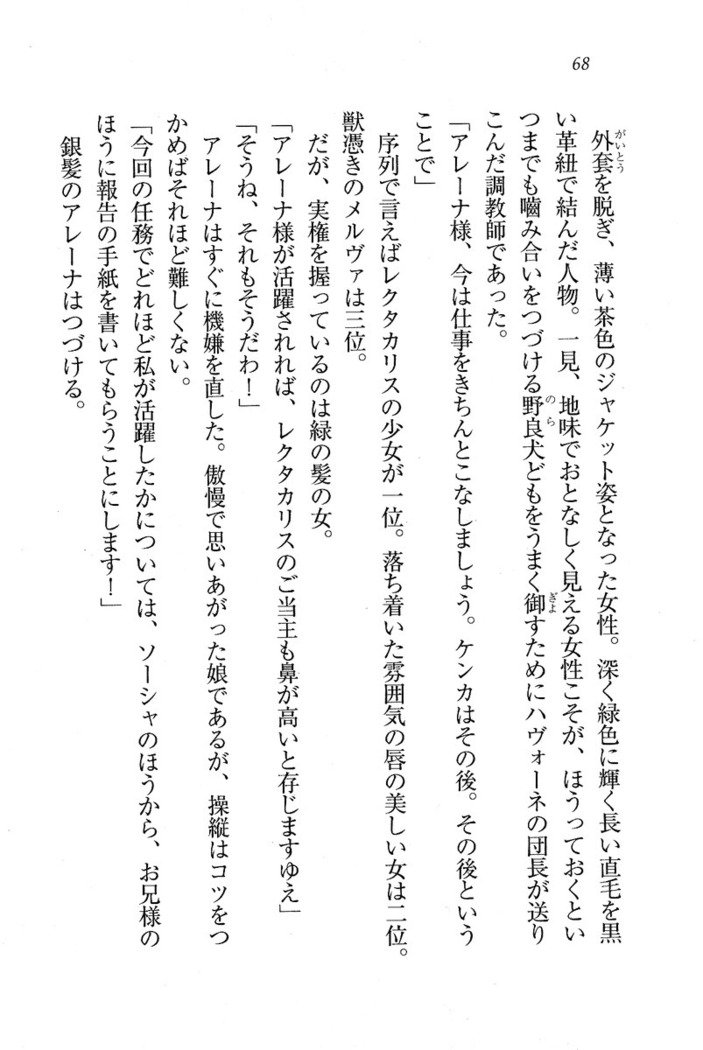 68
外套を脱ぎ、薄い茶色のジャケット姿となった女性。深く緑色に輝く長い直毛を黒
い革紐で結んだ人物。一見、地味でおとなしく見える女性こそが、ほうっておくとい
つまでも嚙み合いをつづける野良犬どもをうまく御すためにハヴォーネの団長が送り
こんだ調教師であった。
「アレーナ様、今は仕事をきちんとこなしましょう。ケンカはその後。その後という
ことで」
序列で言えばレクタカリスの少女が一位。落ち着いた雰囲気の唇の美しい女は二位。
獣憑きのメルヴァは三位。
だが、実権を握っているのは緑の髪の女。
「アレーナ様が活躍されれば、レクタカリスのご当主も鼻が高いと存じますゆえ」
「そうね、それもそうだわ！」
アレーナはすぐに機嫌を直した。傲慢で思いあがった娘であるが、操縦はコツをつ
かめばそれほど難しくない。
「今回の任務でどれほど私が活躍したかについては、ソーシャのほうから、お兄様の
ほうに報告の手紙を書いてもらうことにします！」
銀髪のアレーナはつづける。
がいとう
のら
ぎよ